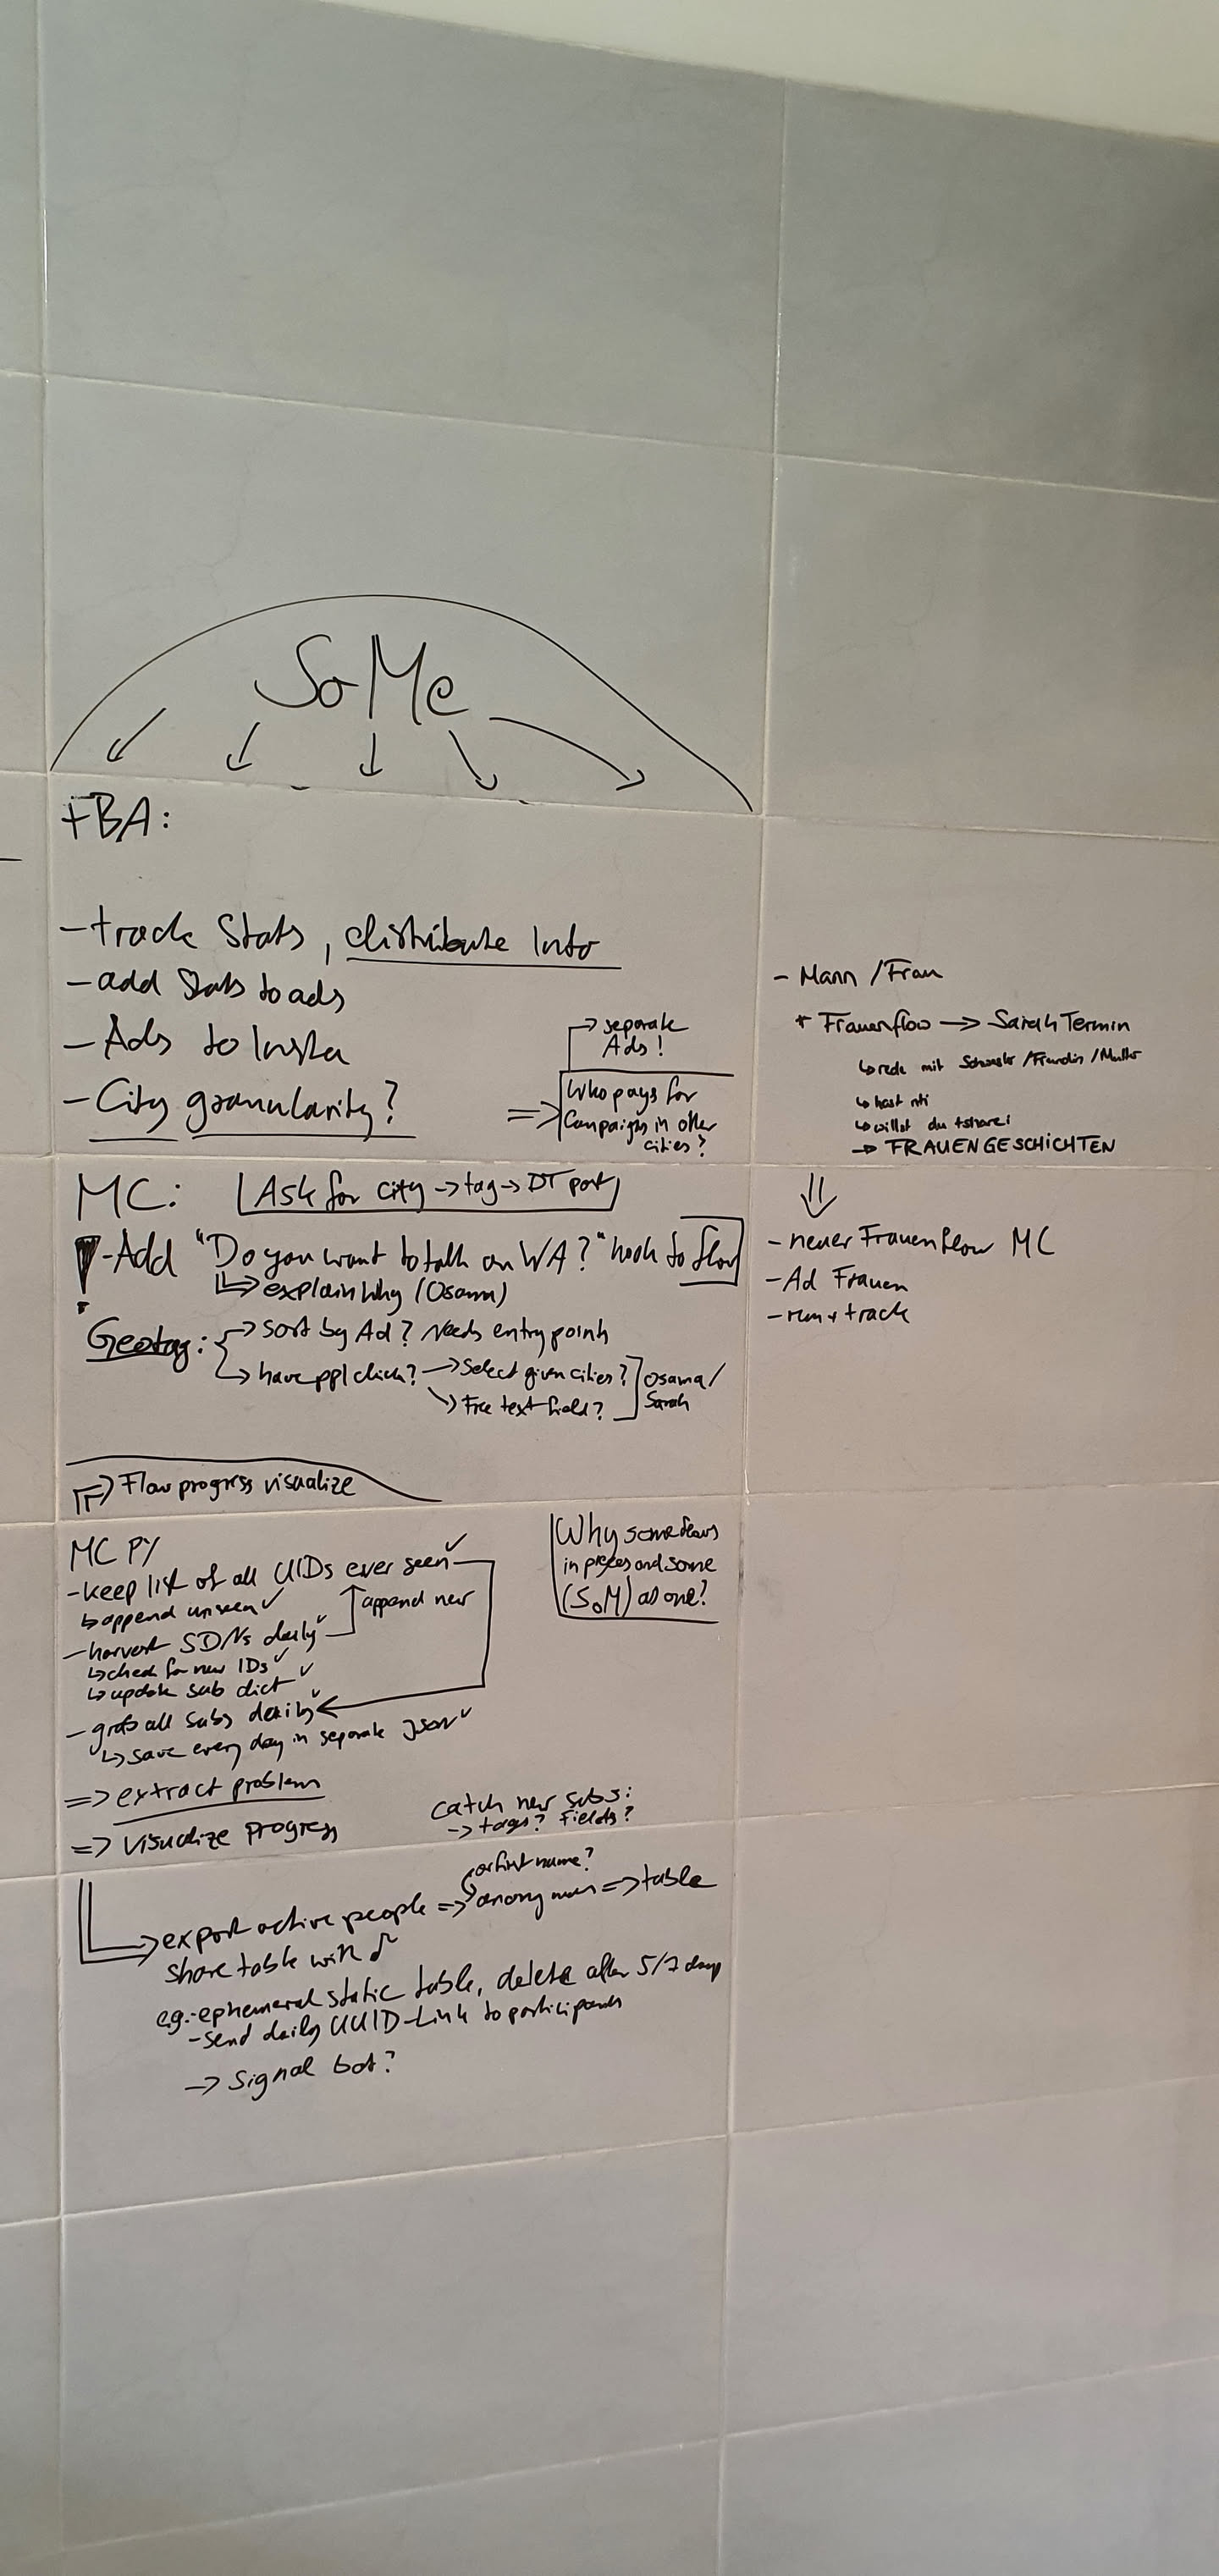 SoMe
FBA:
- track Stats, distribute Info
- add Stats to ads
- Ads to Insta
- City granularity?
→ separate
Ads!
=> Who pays for
Campaigns in other
cities?
MC: Ask for city → tag → DT port
! - Add "Do you want to talk on WA?" hook to flow
↳ explain why (Osama)
Geotag: → sort by Ad? Needs entry point
↳ have ppl click? → Select given cities?
↘ Free text field?
Osama/
Sarah
=> Flow progress visualize
MC PY
- keep list of all UIDs ever seen ✓
↳ append unseen ✓
append new
- harvest SDNs daily ✓
↳ check for new IDs ✓
↳ update sub dict ✓
- grab all subs daily ✓
↳ save every day in separate json ✓
=> extract problem
=> visualize progress
Why some flows
in pieces and some
(SoM) as one?
Catch new subs:
→ tags? Fields?
or first name?
=> export active people => anonymous => table
share table with
e.g.: ephemeral static table, delete after 5/7 days
- send daily UUID-Link to participants
→ Signal bot?
- Mann / Frau
+ Frauenflow → Sarah Termin
↳ rede mit Schwester / Freundin / Mutter
↳ hast
↳ willst du
→ FRAUENGESCHICHTEN
⇓
- neuer Frauenflow MC
- Ad Frauen
- run + track